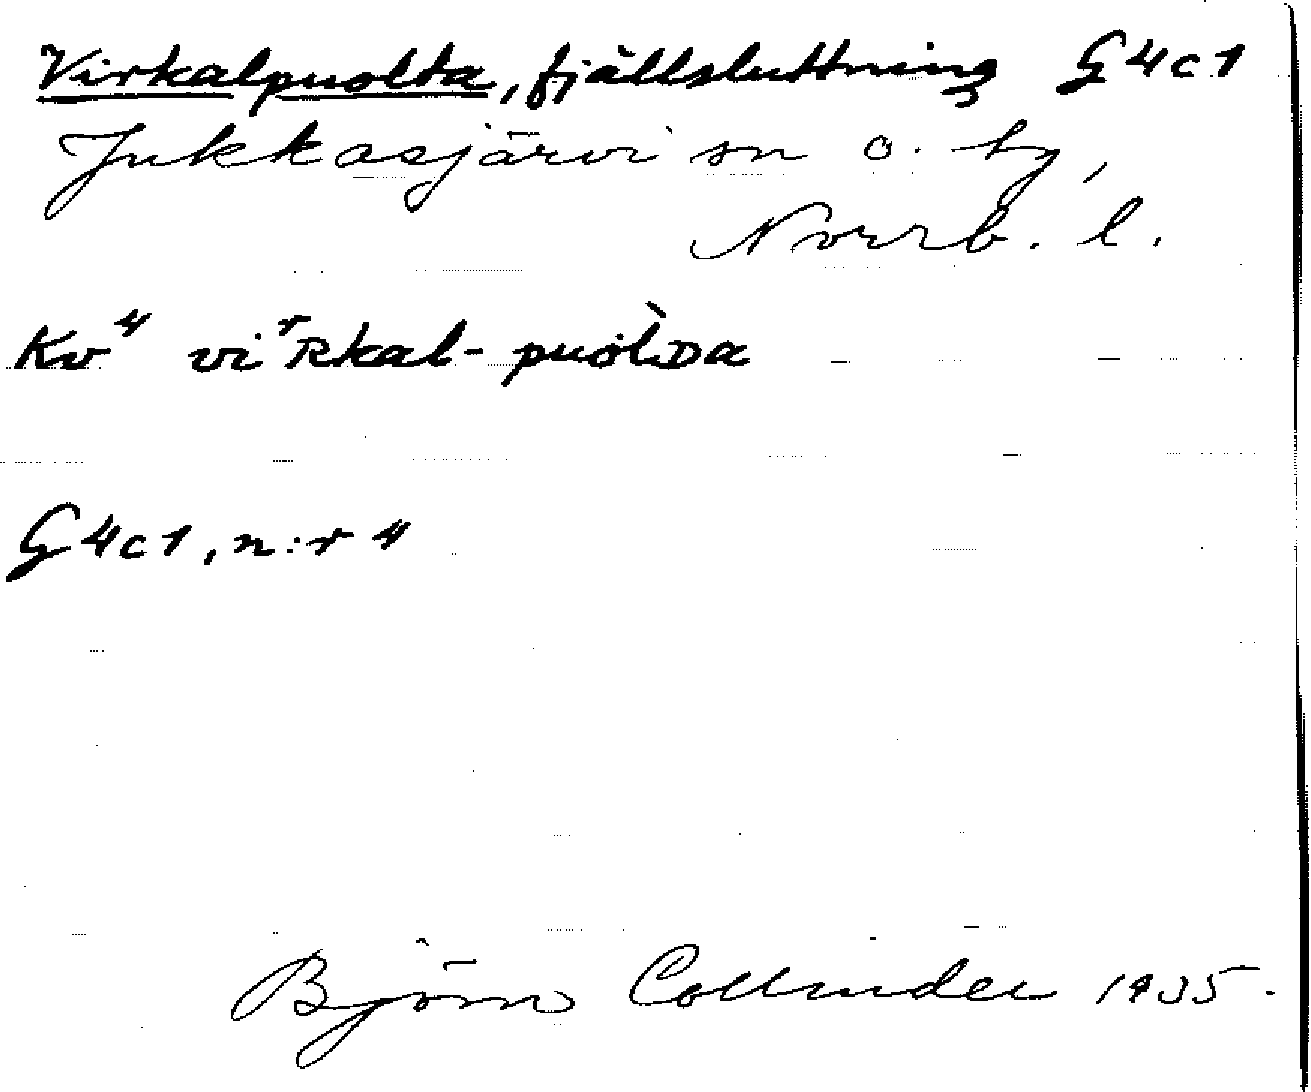 Virkalpuolta, fjällsluttning G4c1
Jukkasjärvi sn o. by,
Norrb. l.
Kv⁴ viʳʀkal-puòlᴅa
G4c1, n:r 4
Björn Collinder 1935.